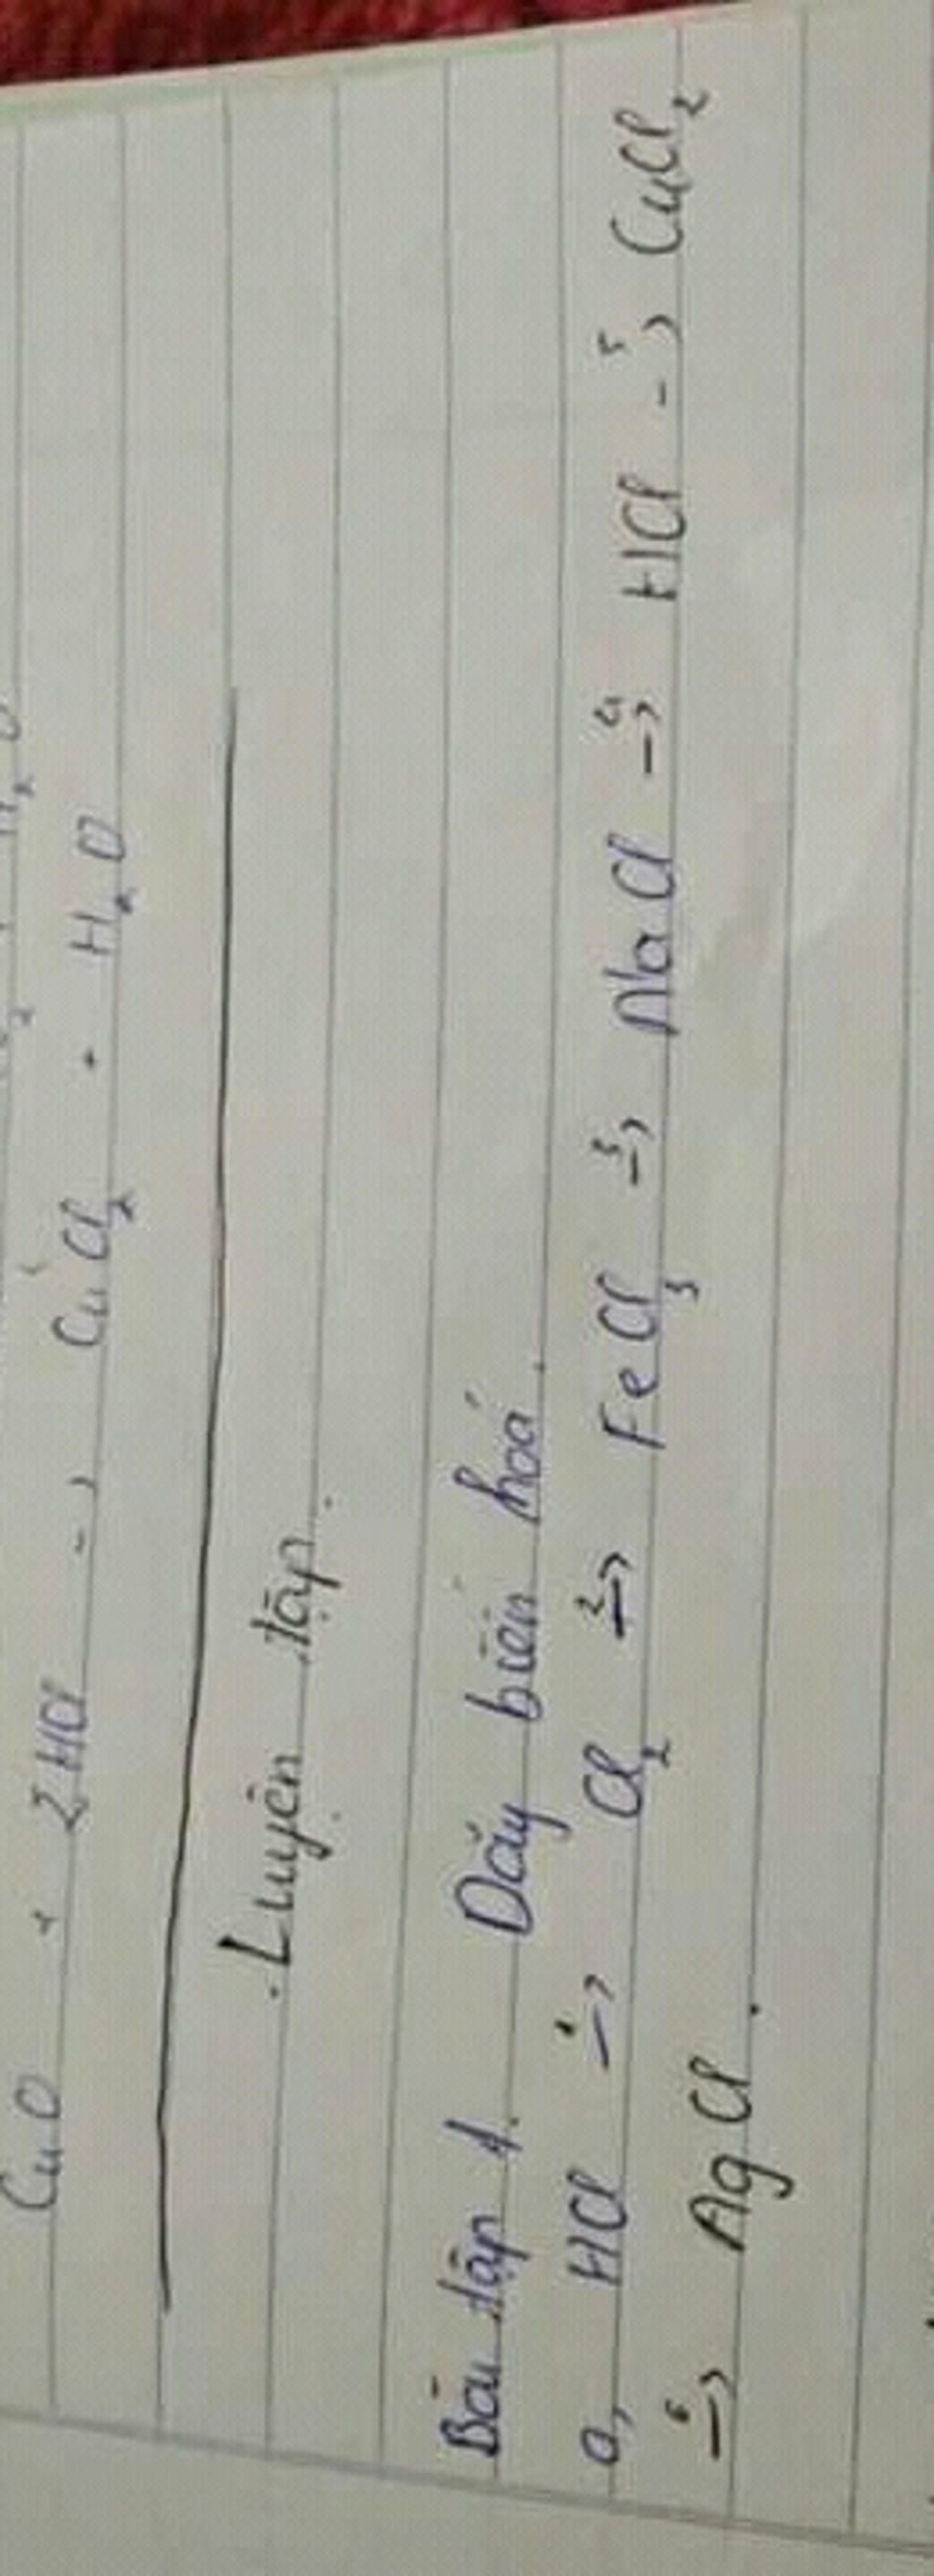 CuO + 2HCl -> CuCl2 + H2O
Luyện tập.
Bài tập 1. Dãy biến hoá.
a, HCl -1-> Cl2 -2-> FeCl3 -3-> NaCl -4-> HCl -5-> CuCl2
-6-> AgCl.